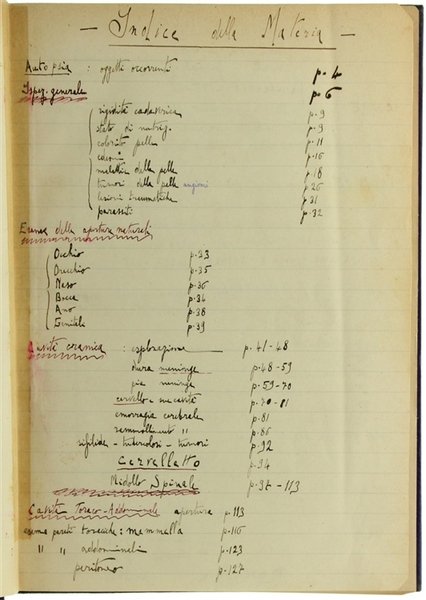 — Indice della Materia —
Autopsia : oggetti occorrenti p. 4
Ispez. generale p. 6
rigidità cadaverica p. 9
stato di nutriz. p. 9
colorito pelle p. 11
edemi p. 16
malattie della pelle p. 18
tumori della pelle angiomi p. 26
lesioni traumatiche p. 31
parassiti p. 32
Esame delle aperture naturali
Occhio p. 33
Orecchio p. 35
Naso p. 36
Bocca p. 34
Ano p. 38
Genitali p. 39
Cavità cranica : esplorazione p. 41-48
dura meninge p. 48-59
pia meninge p. 59-70
cervello - sue cavità p. 70-81
emorragia cerebrale p. 81
rammolliment " p. 86
sifilide - tubercolosi - tumori p. 92
Cervelletto p. 94
Midollo Spinale p. 97-113
Cavità Toraco-Addominale apertura p. 113
esame pareti toraciche : mammella p. 116
" " addominali p. 123
peritoneo p. 127